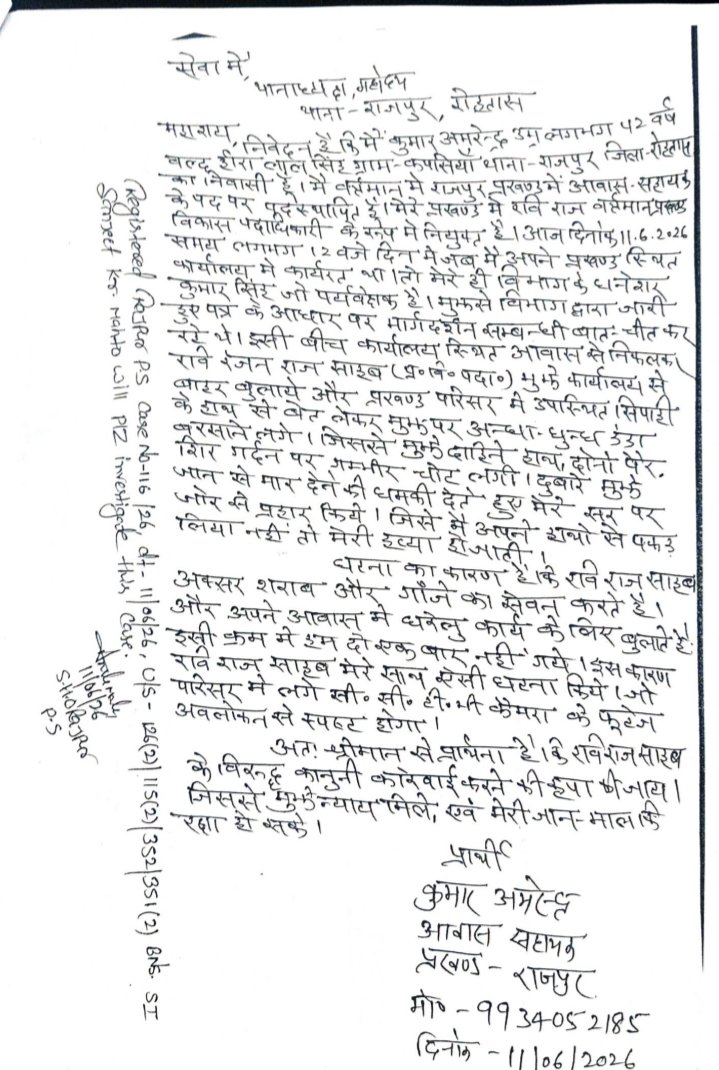 सेवा में,
थानाध्यक्ष, महोदय
थाना - राजपुर, रोहतास
महाशय,
निवेदन है कि मैं कुमार अमरेन्द्र उम्र लगभग 42 वर्ष
वल्द हीरा लाल सिंह ग्राम - कपसियाँ थाना - राजपुर जिला - रोहतास
का निवासी हूँ। मैं वर्तमान में राजपुर प्रखण्ड में आवास - सहायक
के पद पर पदस्थापित हूँ। मेरे प्रखण्ड में रवि राज वर्तमान प्रखण्ड
विकास पदाधिकारी के रूप में नियुक्त है। आज दिनांक 11.6.2026
समय लगभग 12 बजे दिन में जब मैं अपने प्रखण्ड स्थित
कार्यालय में कार्यरत था। तो मेरे ही विभाग के धनेशर
कुमार सिंह जो पर्यवेक्षक है। मुझसे विभाग द्वारा जारी
हुए पत्र के आधार पर मार्गदर्शन सम्बन्धी बात - चीत कर
रहे थे। इसी बीच कार्यालय स्थित आवास से निकलकर
रवि रंजन राज साहब (प्र० वि० पदा०) मुझे कार्यालय से
बाहर बुलाये और प्रखण्ड परिसर में उपस्थित सिपाही
के हाथ से बेत लेकर मुझ पर अन्धा - धुन्ध डंडा
बरसाने लगे। जिससे मुझे दाहिने हाथ, दोनो पैर,
शिर गर्दन पर गम्भीर चोट लगी। दुबारे मुझे
जान से मार देने की धमकी देते हुए मेरे सर पर
जोर से प्रहार किये। जिसे मैं अपने हाथो से पकड़
लिया नहीं तो मेरी हत्या हो जाती।
घटना का कारण है कि रवि राज साहब
अक्सर शराब और गाँजे का सेवन करते है।
और अपने आवास में घरेलु कार्य के लिए बुलाते है
इसी क्रम में हम दो एक बार नहीं गये। इस कारण
रवि राज साहब मेरे साथ ऐसी घटना किये। जो
परिसर में लगे सी० सी० टी० भी कैमरा के फुटेज
अवलोकन से स्पष्ट होगा।
अतः श्रीमान से प्रार्थना है कि रवि राज साहब
के विरुद्ध कानुनी कारेवाई करने की कृपा की जाय।
जिससे मुझे न्याय मिले, एवं मेरी जान - माल कि
रक्षा हो सके।
प्रार्थी
कुमार अमरेन्द्र
आवास सहायक
प्रखण्ड - राजपुर
मो० - 9934052185
दिनांक - 11/06/2026
Registered Rajpur P.S Case No-116/26, dt-11/06/26, U/S-126(2)/115(2)/352/351(2) BNS. SI
Sanjeet Kr. Mahto will Plz investigate this case.
11/06/26
SHO Rajpur
P.S